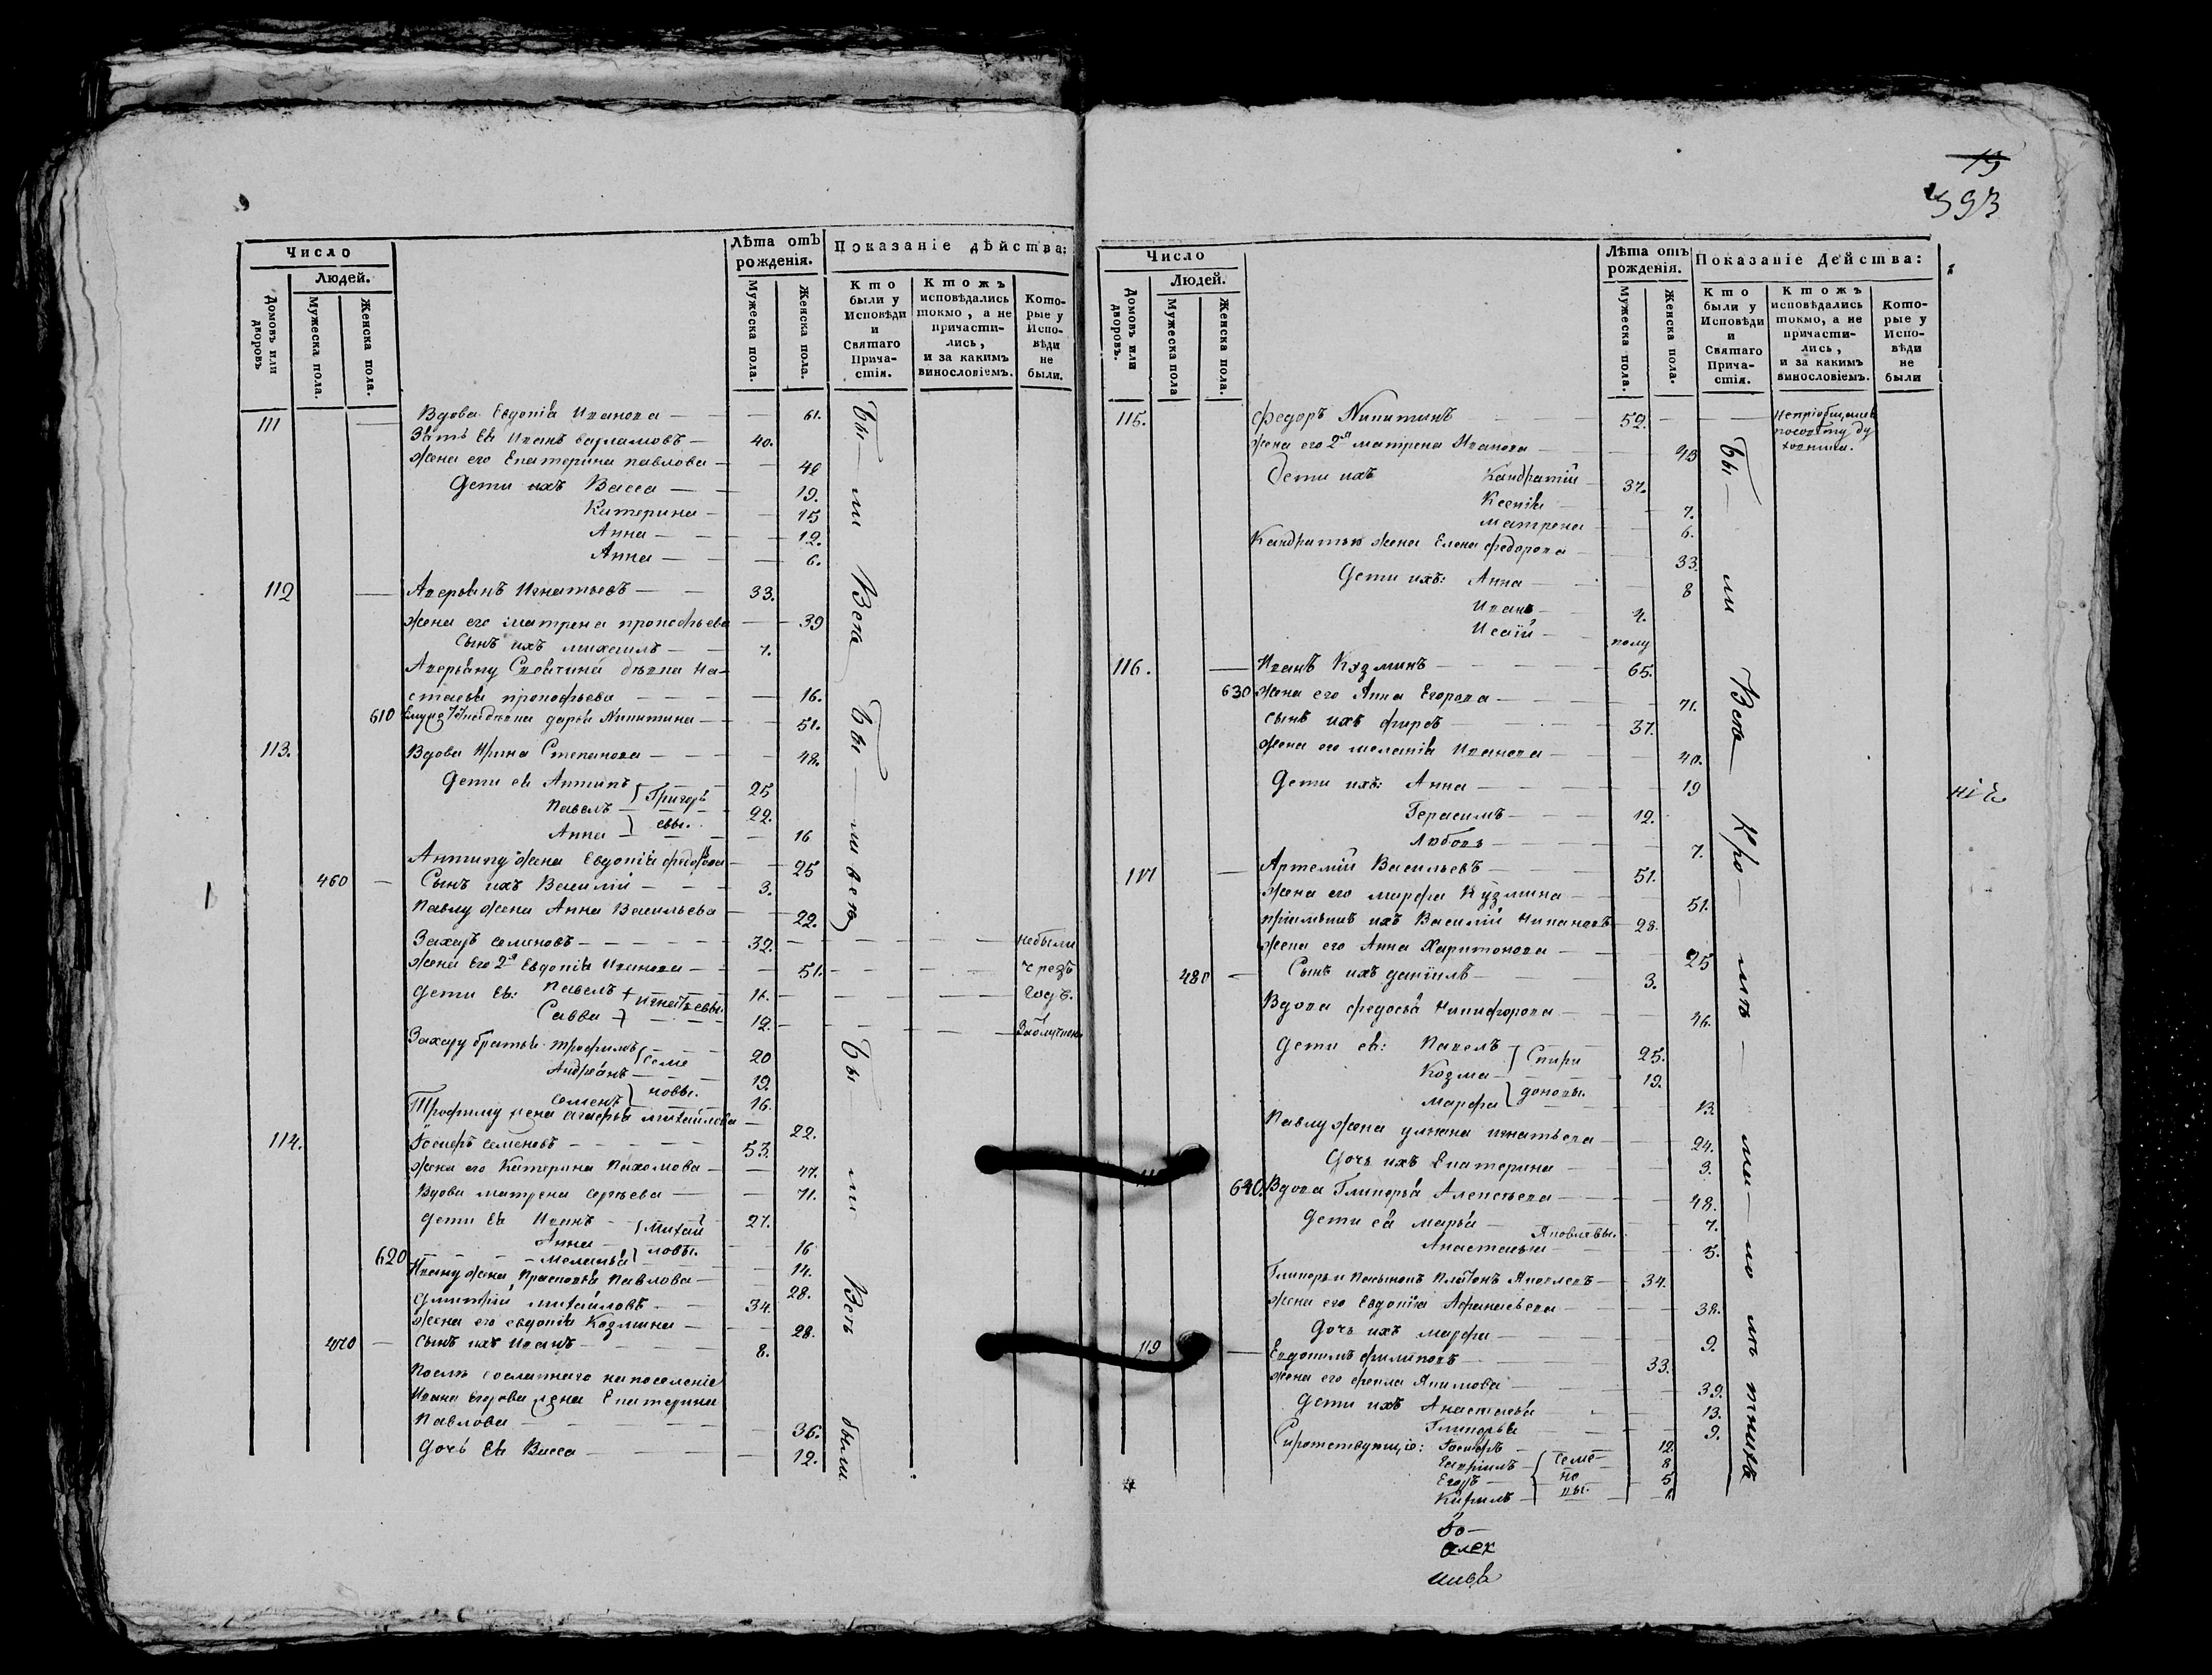 Число
Людей.
Домовъ или дворовъ
Мужеска пола.
Женска пола.
Лѣта отъ рожденія.
Мужеска пола.
Женска пола.
Показаніе дѣйства:
Кто были у Исповѣди и Святаго Причастія.
Ктожъ исповѣдались токмо, а не причастились, и за какимъ винословіемъ.
Которые у Исповѣди не были.
111 Вдова Евдокія Иванова — — 61.
Зять ея Иванъ варламовъ — 40.
Жена его Екатерина павлова — — 40
Дети ихъ Васса — — 19.
Катерина — — 15
Анна — — 12.
Анна — — 6.
112 Аверьянъ Игнатьевъ — — 33.
Жена его матрена прокофьева — 39
Сынъ ихъ михаилъ — — 7.
Аверьяну
стасья прокофьева — — — 16.
610 дарья Никитина — — 51.
113. Вдова Ирина Степанова — — — 48.
Дети ея Антипъ Григорь 25
Павелъ евы. 22.
Анна — 16
Антипу жена Евдокія федорова — 25
460 — Сынъ ихъ Василій — — — 3.
Павлу жена Анна Васильева — — 22.
Захаръ семеновъ — — — 32. небыли
Жена Его 2я Евдокія Иванова — — 51. чрезъ
Дети Ея: Павелъ Игнатьевы 16. год.
Савва 12.
Захару братья трофимъ семе 20
Андреянъ — 19.
Семенъ новы. 16.
Трофиму жена агафья михайлова — 22.
114. Іосифъ семеновъ — — — 53.
Жена его Катерина Пахомова — — 47.
Вдова матрена сергѣева — — 71.
Дети Ея Иванъ Михай 27.
Анна ловы. 16
620 Меланья — 14.
Ивану жена Прасковья Павлова — 28.
Димитрій михайловъ — — 34.
Жена его евдокія Козмина — — 28.
470 — Сынъ ихъ Иванъ — — 8.
Послѣ сосланнаго на поселеніе
Ивана Егорова жена Екатерина
Павлова — — — 36.
Дочь Ея Васса — — — 12.
Бы — ли Всѣ Бы — ли всѣ
Бы — ли Всѣ были
19
593
Число
Людей.
Домовъ или дворовъ.
Мужеска пола
Женска пола.
Лѣта отъ рожденія.
Мужеска пола.
Женска пола.
Показаніе Действа:
Кто были у Исповѣди и Святаго Причастія.
Ктожъ исповѣдались токмо, а не причастились, и за какимъ винословіемъ.
Которые у Исповѣди не были
115. федоръ Никитинъ 52. непріобщался
посовѣту ду
ховника.
Жена его 2я матрена Иванова — 43
Дети ихъ Кандратій 37.
Ксенія — 7.
матрена — 6.
Кандратья жена Елена федорова — 33.
Дети ихъ: Анна — 8
Иванъ — 4.
Исаій — полу
116. Иванъ Кузминъ — — 65.
630 Жена его Анна Егорова — — 71.
Сынъ ихъ фирсъ — — 37.
Жена его меланія Иванова — — 40.
Дети ихъ: Анна — — 19
Герасимъ — — 12.
Любовь — — 7.
117 — Артемій Васильевъ — — 51.
Жена его марфа Кузмина — — 51.
пріимышъ ихъ Василій 28.
Жена его Анна Харитонова — — 25
480 — Сынъ ихъ даніилъ — — 3.
Вдова федосья Никифорова — — 46.
Дети ея: Павелъ Спири 25.
Козма — 19.
марфа доновы. 13.
Павлу жена ульяна игнатьева — 24.
Дочь ихъ Екатерина — — 3.
640. Вдова Гликерья Алексѣева — — 48.
Дети ея марья — Яковлевы. 7.
Анастасья — 5.
Гликерьи пасынокъ Платонъ Яковлевъ — 34.
Жена его Евдокіа Афанасьева — 38.
Дочь ихъ марфа — — 9.
119 — Евдокимъ филиповъ — — 33.
Жена его фекла Якимова — — 39.
Дети ихъ Анастасья 13.
Гликерья 9.
Сиротствующіе: Іосифъ — 12.
Гавріилъ — семе 8
Егоръ — но 5
Кирилъ — вы.
Бы — ли Всѣ Кро — мѣ
ніе